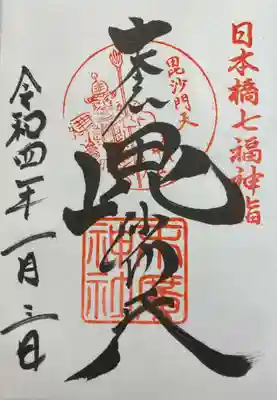 日本橋七福神詣
毘沙門天
毘沙門天
末廣神社
令和四年一月三日